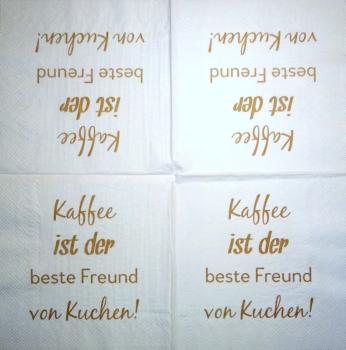 von Kuchen!
beste Freund
ist der
Kaffee
von Kuchen!
beste Freund
ist der
Kaffee
Kaffee
ist der
beste Freund
von Kuchen!
Kaffee
ist der
beste Freund
von Kuchen!